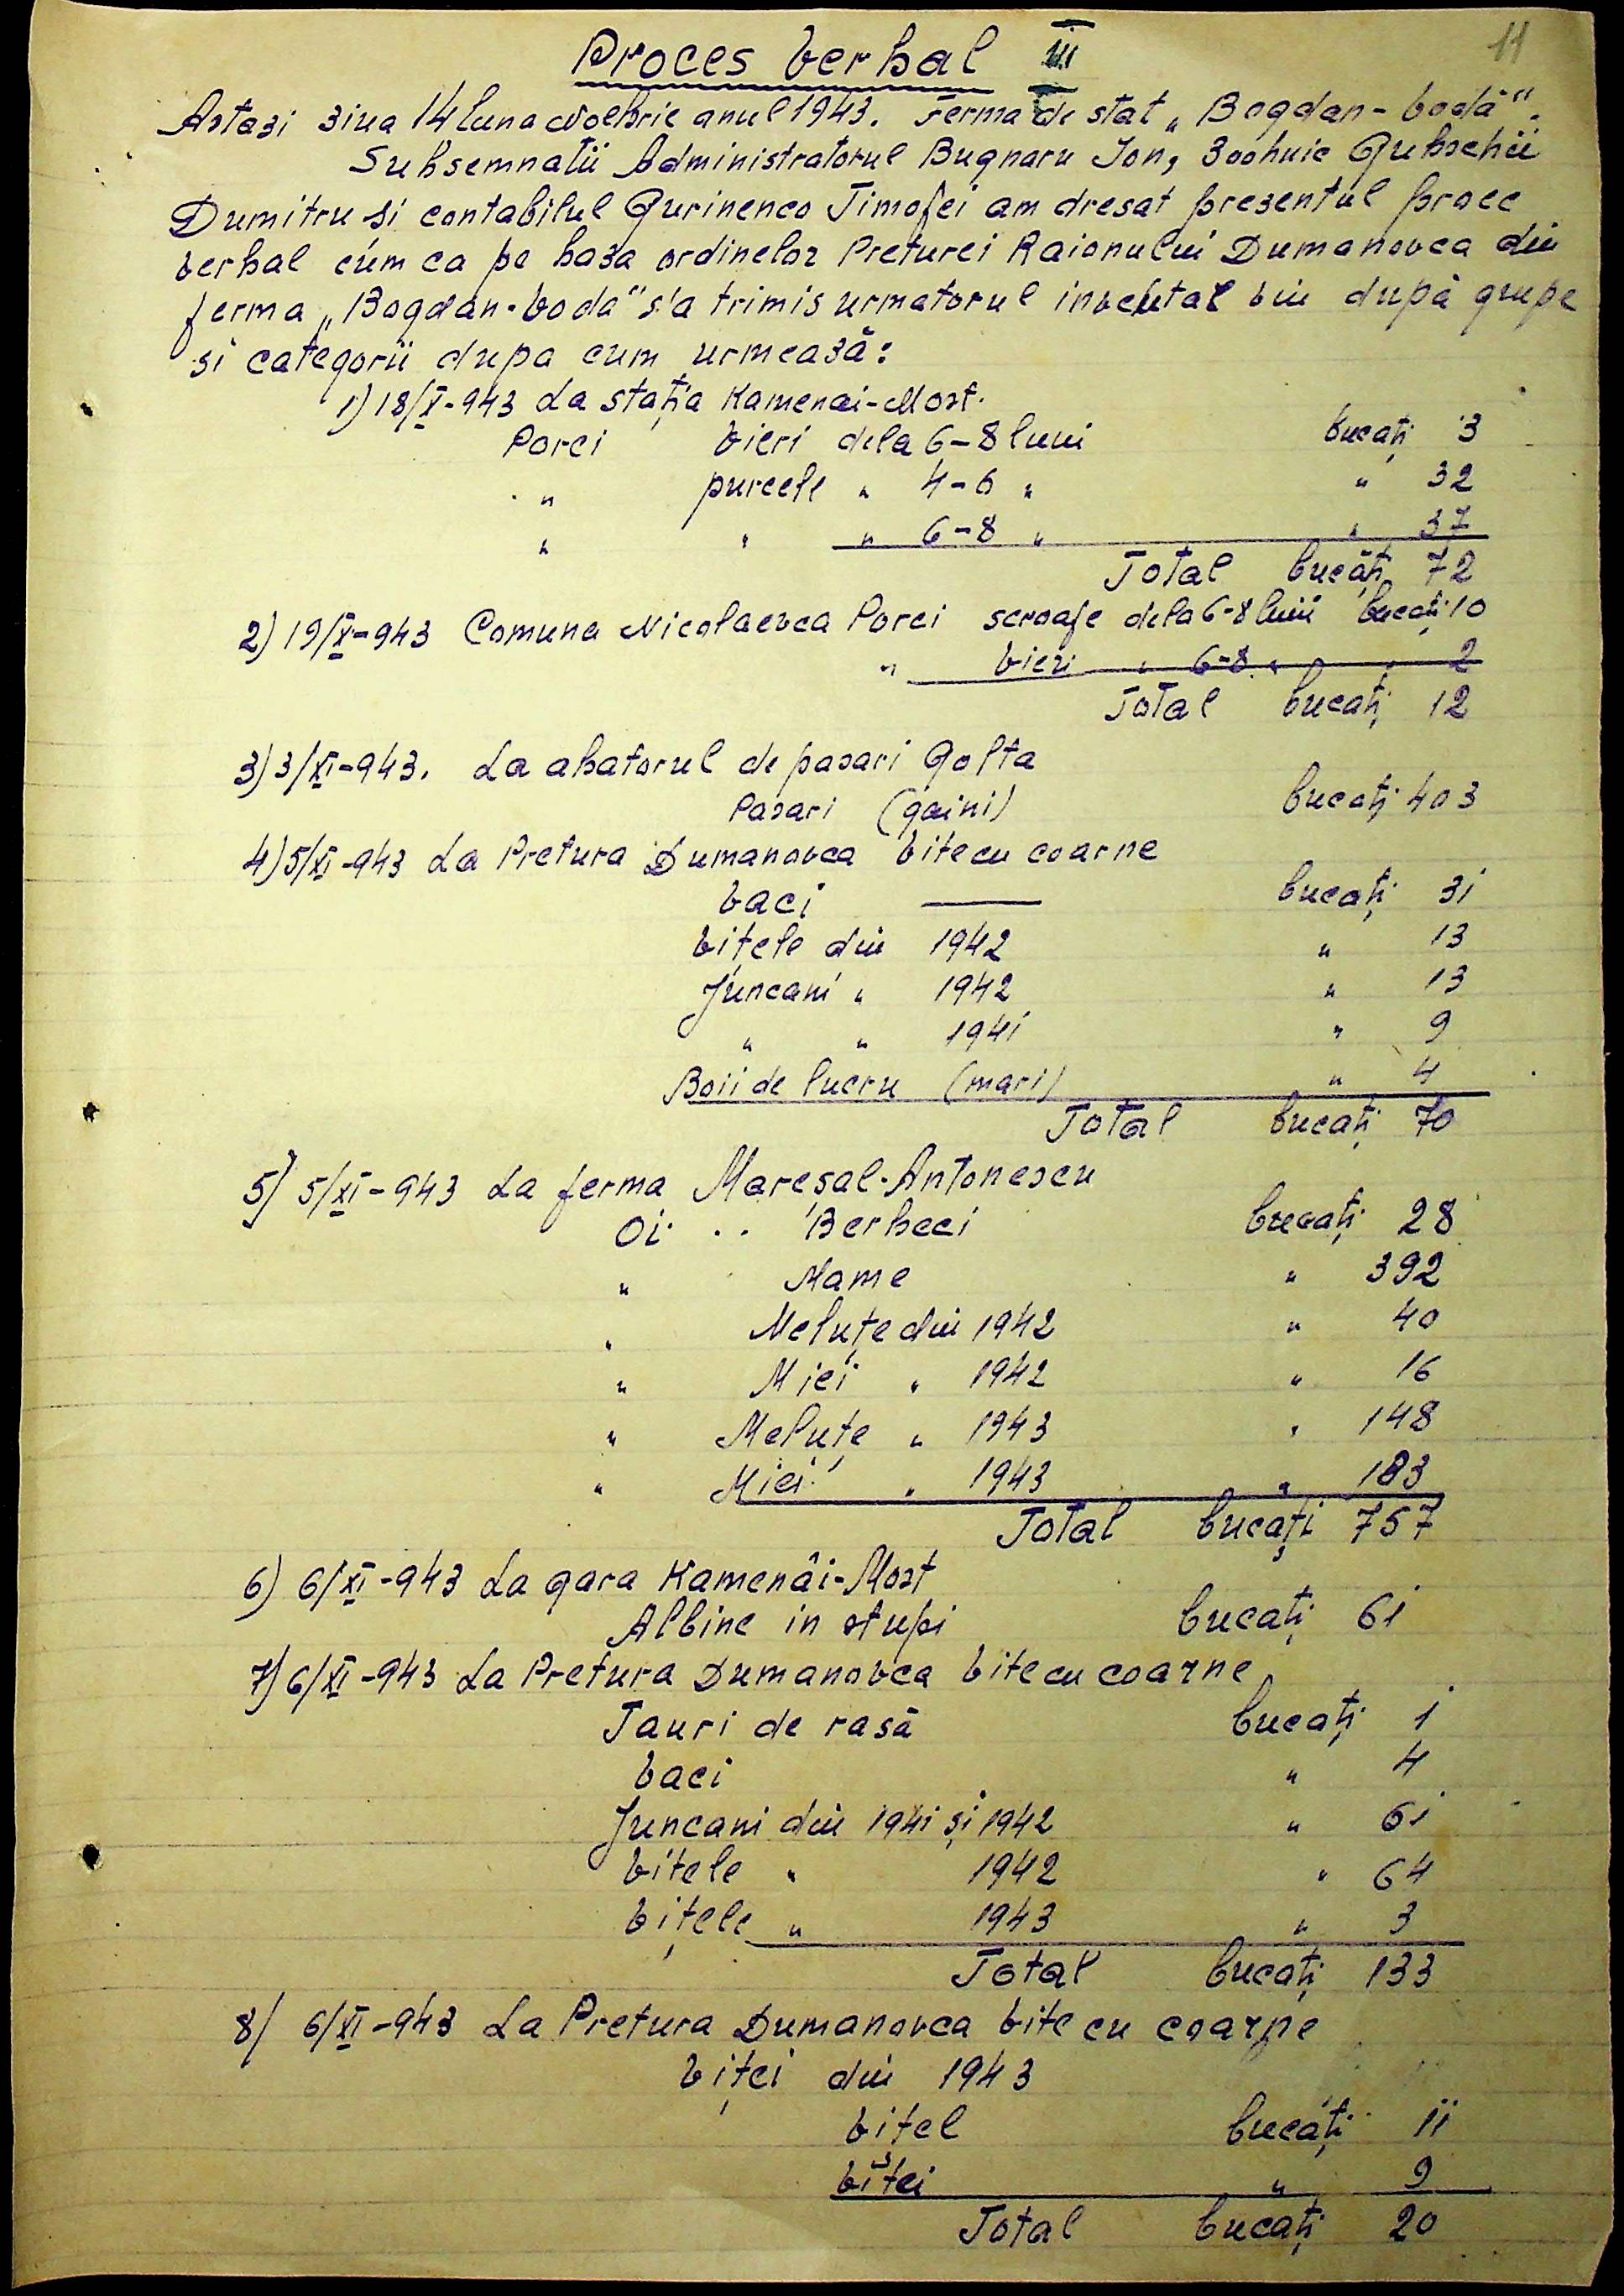 11
Proces verbal III
Astazi ziua 14 luna Noebrie anul 1943. Ferma de stat „Bogdan-Vodă".
Subsemnatii Administratorul Bugnaru Ion, Zoohnic Gubschii
Dumitru si contabilul Gurinenco Timofei am dresat prezentul proce
verbal cum ca pe baza ordinelor Preturei Raionului Dumanovca din
ferma „Bogdan-Vodă" s'a trimis urmatorul inventar viu după grupe
si categorii dupa cum urmează:
1) 18/X-943 La stația Kamenai-Most.
Porci vieri dela 6-8 luni bucați 3
" purcele " 4-6 " " 32
" " " 6-8 " " 37
Total bucăți 72
2) 19/X-943 Comuna Nicolaevca Porci scroafe dela 6-8 luni bucați 10
" vieri " 6-8 " " 2
Total bucați 12
3) 3/XI-943. La abatorul de pasari Golta
Pasari (gaini) bucați 403
4) 5/XI-943 La Pretura Dumanovca vite cu coarne
vaci — bucați 31
vițele din 1942 " 13
Juncani " 1942 " 13
" " 1941 " 9
Boii de lucru (mari) " 4
Total bucați 70
5) 5/XI-943 La ferma Mareșal-Antonescu
Oi .. Berbeci bucați 28
" Mame " 392
" Meluțe din 1942 " 40
" Miei " 1942 " 16
" Meluțe " 1943 " 148
" Miei " 1943 " 183
Total bucați 757
6) 6/XI-943 La gara Kamenâi-Most
Albine in stupi bucați 61
7) 6/XI-943 La Pretura Dumanovca vite cu coarne
Tauri de rasă bucați 1
vaci " 4
Juncani din 1941 și 1942 " 61
vitele " 1942 " 64
vițele " 1943 " 3
Total bucați 133
8) 6/XI-943 La Pretura Dumanovca vite cu coarne
viței din 1943
vitel bucăți 11
vitei " 9
Total bucați 20